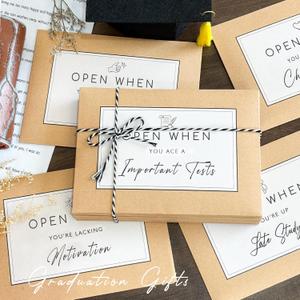 OPEN WHEN
OPEN
YOU
OPEN WHEN
YOU ACE A
Important Tests
OPEN
YOU'RE LACKING
Motivation
WHEN
YOU'RE UP
Late Study
Graduation Gifts